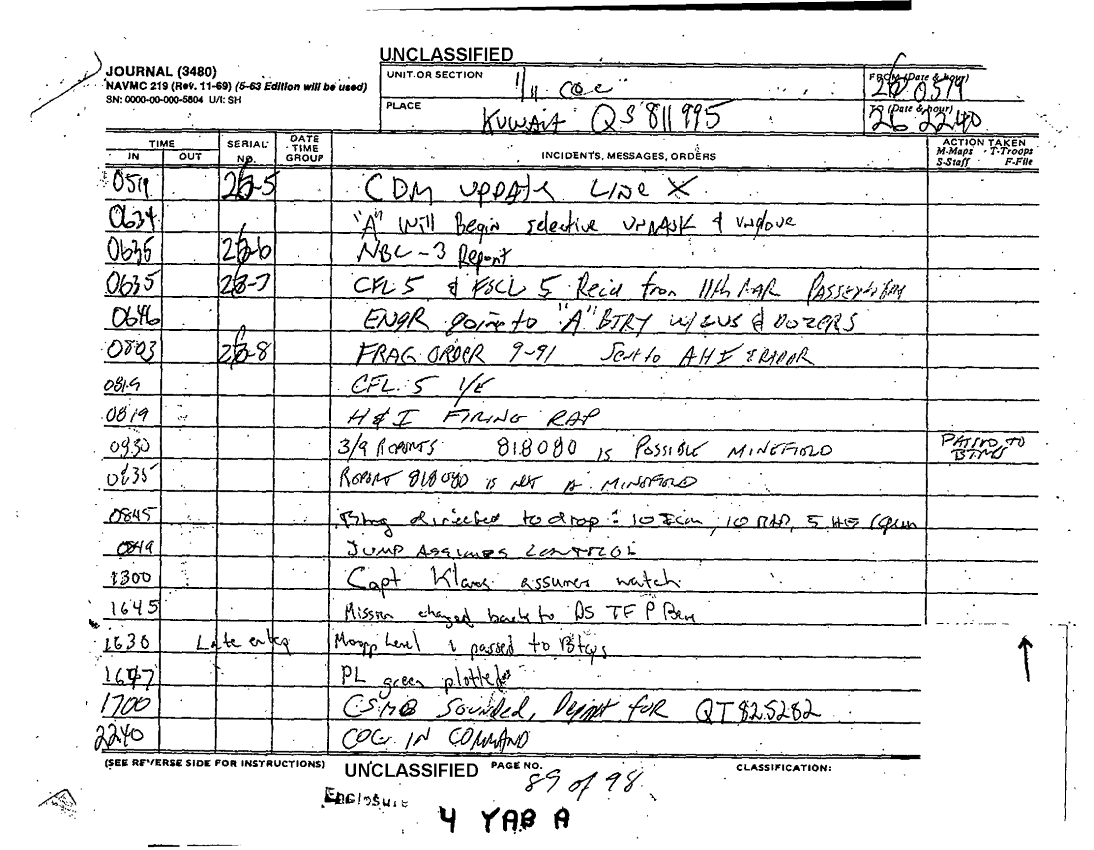 UNCLASSIFIED
JOURNAL (3480)
NAVMC 219 (Rev. 11-69) (5-63 Edition will be used)
SN: 0000-00-000-5804 U/I: SH
UNIT OR SECTION 1/11 COC
FROM (Date & hour) 26 0519
PLACE KUWAIT QS 811995
TO (Date & hour) 26 2240
TIME IN OUT SERIAL NO. DATE TIME GROUP INCIDENTS, MESSAGES, ORDERS ACTION TAKEN M-Maps T-Troops S-Staff F-File
0519 26-5 CDM UPDATE LINE X
0634 "A" Will Begin selective UNMASK & unglove
0635 26-6 NBC-3 Report
0635 26-7 CFL 5 & FSCL 5 Rec'd from 11th MAR
0646 ENGR going to "A" BTRY W/ & DOZERS
0803 26-8 FRAG ORDER 9-91 Sent to
0819 CFL 5 I/E
0819 H&I FIRING RAP
0930 3/9 REPORTS 818080 IS POSSIBLE MINEFIELD PASSED TO BTRYS
0835 REPORT 818080 IS NOT A MINEFIELD
0845 Btrys directed to drop: 10 , 10 RAP, 5 HE
0849 JUMP ASSUMES CONTROL
1300 Capt assumes watch
1645 Mission changed back to DS TF P Bear
1630 Late entry Mopp Level 1 passed to Btrys
1647 PL green plotted
1700 Sounded, Depart for QT 825282
2240 COC IN COMMAND
(SEE REVERSE SIDE FOR INSTRUCTIONS) UNCLASSIFIED PAGE NO. 89 of 98 CLASSIFICATION:
Enclosure
4 YAB A